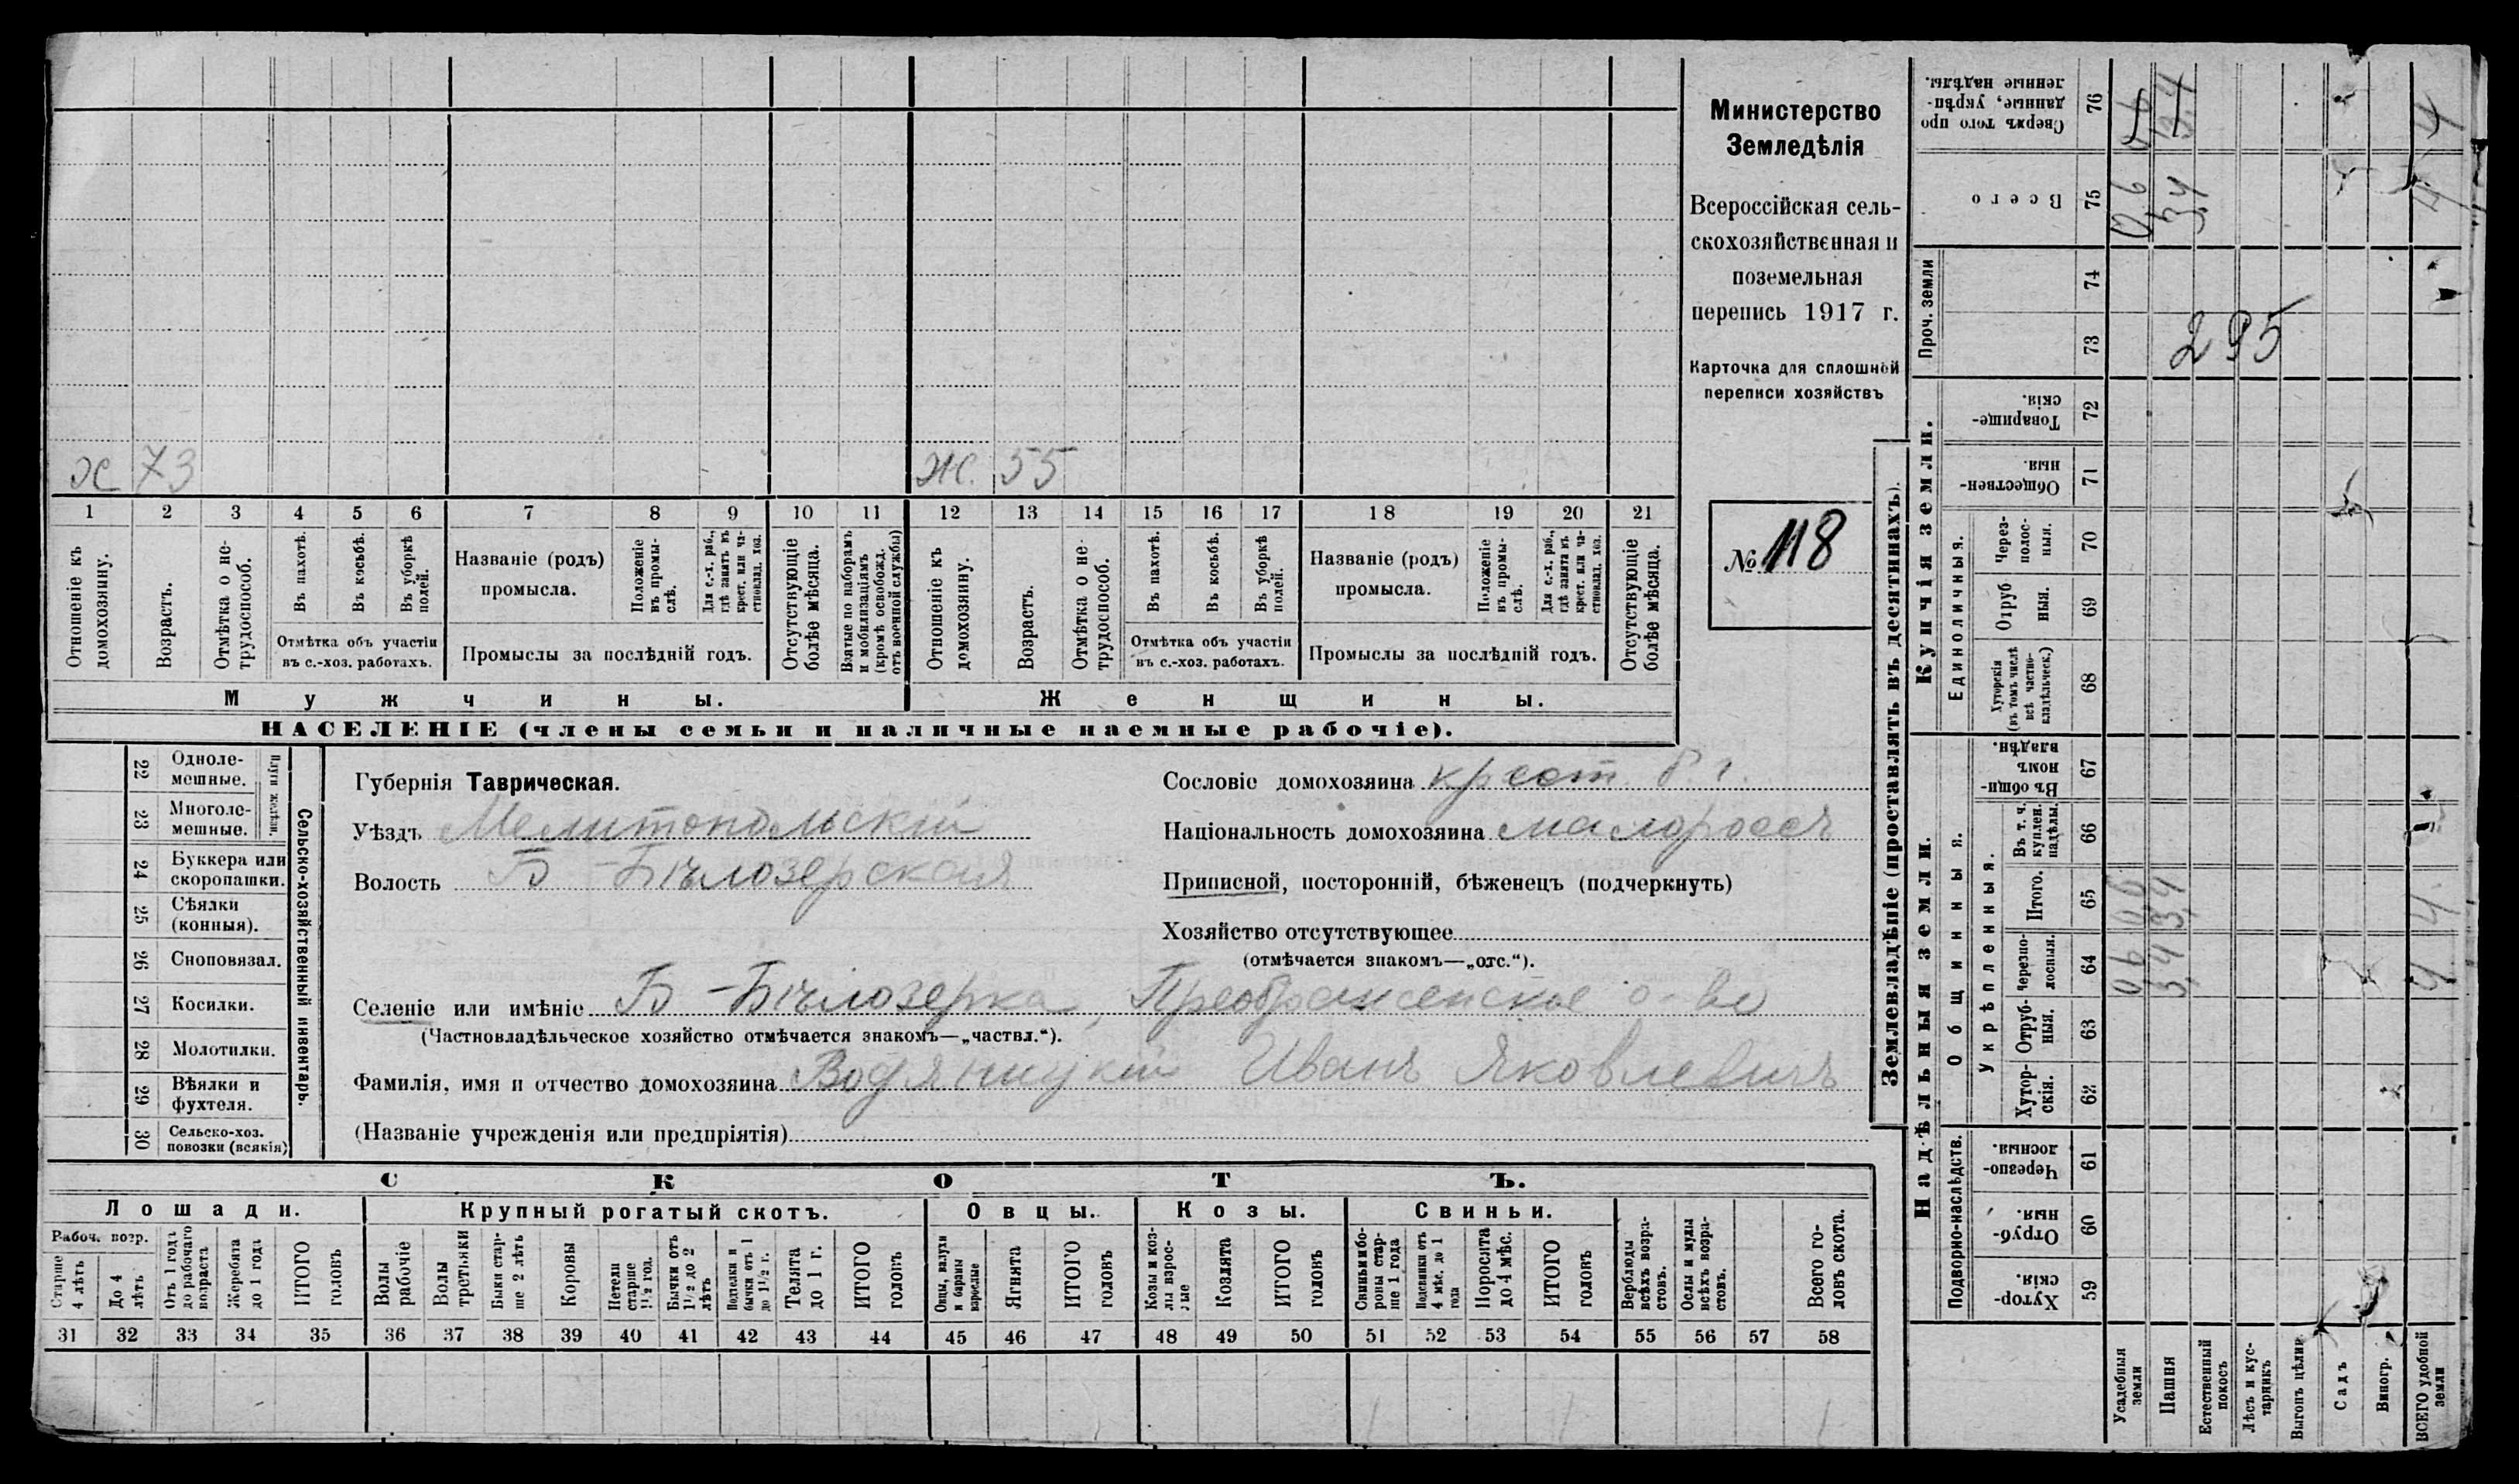 х 73
ж. 55
1 2 3 4 5 6 7 8 9 10 11 12 13 14 15 16 17 18 19 20 21
Отношеніе къ домохозяину.
Возрастъ.
Отмѣтка о не-
трудоспособ.
Въ пахотѣ.
Въ косьбѣ.
Въ уборкѣ
полей.
Отмѣтка объ участіи
въ с.-хоз. работахъ.
Названіе (родъ)
промысла.
Положеніе
въ промы-
слѣ.
Для с.-х. раб.,
гдѣ занятъ въ
крест. или ча-
стновлад. хоз.
Промыслы за послѣдній годъ.
Отсутствующіе
болѣе мѣсяца.
Взятые по наборамъ
и мобилизаціямъ
(кромѣ освобожд.
отъ военной службы)
Отношеніе къ
домохозяину.
Возрастъ.
Отмѣтка о не-
трудоспособ.
Въ пахотѣ.
Въ косьбѣ.
Въ уборкѣ
полей.
Отмѣтка объ участіи
въ с.-хоз. работахъ.
Названіе (родъ)
промысла.
Положеніе
въ промы-
слѣ.
Для с.-х. раб.,
гдѣ занята въ
крест. или ча-
стновлад. хоз.
Промыслы за послѣдній годъ.
Отсутствующіе
болѣе мѣсяца.
Мужчины.
Женщины.
НАСЕЛЕНІЕ (члены семьи и наличные наемные рабочіе).
Министерство
Земледѣлія
Всероссійская сель-
скохозяйственная и
поземельная
перепись 1917 г.
Карточка для сплошной
переписи хозяйствъ
№ 118
22 Одноле-
мешные.
23 Многоле-
мешные.
Плуги желѣзн.
24 Буккера или
скоропашки.
25 Сѣялки
(конныя).
26 Сноповязал.
27 Косилки.
28 Молотилки.
29 Вѣялки и
фухтеля.
30 Сельско-хоз.
повозки (всякія)
Сельско-хозяйственный инвентарь.
Губернія Таврическая.
Уѣздъ Мелитопольскій
Волость Б-Бѣлозерская
Сословіе домохозяина крест. б. г.
Національность домохозяина малоросс
Приписной, посторонній, бѣженецъ (подчеркнуть)
Хозяйство отсутствующее
(отмѣчается знакомъ—„отс.“).
Селеніе или имѣніе Б-Бѣлозерка, Преображенское о-во
(Частновладѣльческое хозяйство отмѣчается знакомъ—„частвл.“).
Фамилія, имя и отчество домохозяина Водяницкій Иванъ Яковлевичъ
(Названіе учрежденія или предпріятія)
СКОТЪ.
Лошади.
Крупный рогатый скотъ.
Овцы.
Козы.
Свиньи.
Рабоч. возр.
Старше
4 лѣтъ
До 4
лѣтъ
Отъ 1 года
до рабочаго
возраста
Жеребята
до 1 года
ИТОГО
головъ
Волы
рабочіе
Волы
третьяки
Быки стар-
ше 2 лѣтъ
Коровы
Нетели
старше
1½ год.
Бычки отъ
1½ до 2
лѣтъ
Водтелки и
бычки отъ 1
до 1½ г.
Телята
до 1 г.
ИТОГО
головъ
Овцы, валухи
и бараны
взрослые
Ягнята
ИТОГО
головъ
Козы и коз-
лы взрос-
лые
Козлята
ИТОГО
головъ
Свиньи и бо-
ровы стар-
ше 1 года
Подсвинки отъ
4 мѣс. до 1
года
Поросята
до 4 мѣс.
ИТОГО
головъ
Верблюды
всѣхъ возра-
стовъ.
Ослы и мулы
всѣхъ возра-
стовъ.
Всего го-
ловъ скота.
31 32 33 34 35 36 37 38 39 40 41 42 43 44 45 46 47 48 49 50 51 52 53 54 55 56 57 58
1 1 1
Землевладѣніе (проставлять въ десятинахъ).
Надѣльныя земли.
Купчія земли.
Проч. земли
Подворно-наслѣдств.
Общинныя.
Укрѣпленныя.
Единоличныя.
Сверхъ того про
данные, укрѣп-
ленные надѣлы. 76
Всего 75 0,6 3,4 4
74
73 295
Товарище-
скія. 72
Обществен-
ныя. 71
Через-
полос-
ныя. 70
Отруб
ныя. 69
Хуторскія
(въ томъ числѣ
всѣ частно-
владѣльческ.) 68
Въ общин-
номъ
владѣн. 67
Въ т. ч.
куплен.
надѣлы. 66
Итого. 65 0,6 3,4 4
Черезпо-
лосныя. 64 0,6 3,4 4
Отруб-
ныя. 63
Хутор-
скія. 62
Черезпо-
лосныя. 61
Отруб-
ныя. 60
Хутор-
скія. 59
Усадебныя
земли
Пашня
Естественный
покосъ
Лѣсъ и кус-
тарникъ
Выгонъ цѣлин
Садъ
Виногр.
ВСЕГО удобной
земли